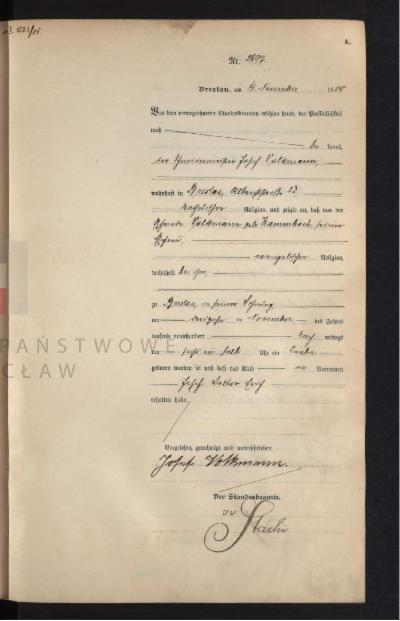 A.
Nr. 2897
Breslau, am 14. November
Vor dem unterzeichneten Standesbeamten erschien heute, der Persönlichkeit
nach be kannt,
der Schneidermeister Josef Volkmann,
wohnhaft in Breslau, Albrechtstraße 13
katholischer Religion, und zeigte an, daß von der
Volkmann geb. Hambach, seiner
Ehefrau,
evangelischer Religion,
wohnhaft bei ihm,
zu Breslau, in seiner Wohnung
am November des Jahres
tausend neunhundert Nach mittags
um sechs ein halb Uhr ein Knabe
geboren worden sei und daß das Kind die Vornamen
Josef Walter Erich
erhalten habe.
Vorgelesen, genehmigt und unterschrieben
Josef Volkmann.
Der Standesbeamte.
PAŃSTWOWE
CŁAW